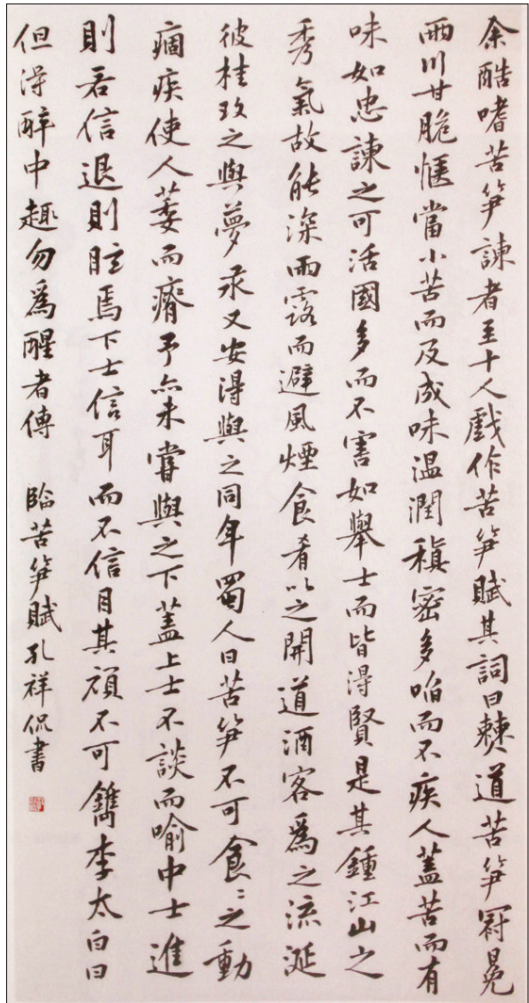 余酷嗜苦笋諫者至十人戲作苦笋賦其詞曰僰道苦笋冠冕
兩川甘脆愜當小苦而及成味溫潤稹密多啗而不疾人蓋苦而有
味如忠諫之可活國多而不害如舉士而皆得賢是其鍾江山之
秀氣故能深雨露而避風煙食肴以之開道酒客為之流涎
彼桂玫之與夢汞又安得與之同年蜀人曰苦笋不可食〻之動
痼疾使人萎而瘠予亦未嘗與之下蓋上士不談而喻中士進
則若信退則眩焉下士信耳而不信目其頑不可鐫李太白曰
但得醉中趣勿為醒者傳 臨苦笋賦孔祥侃書